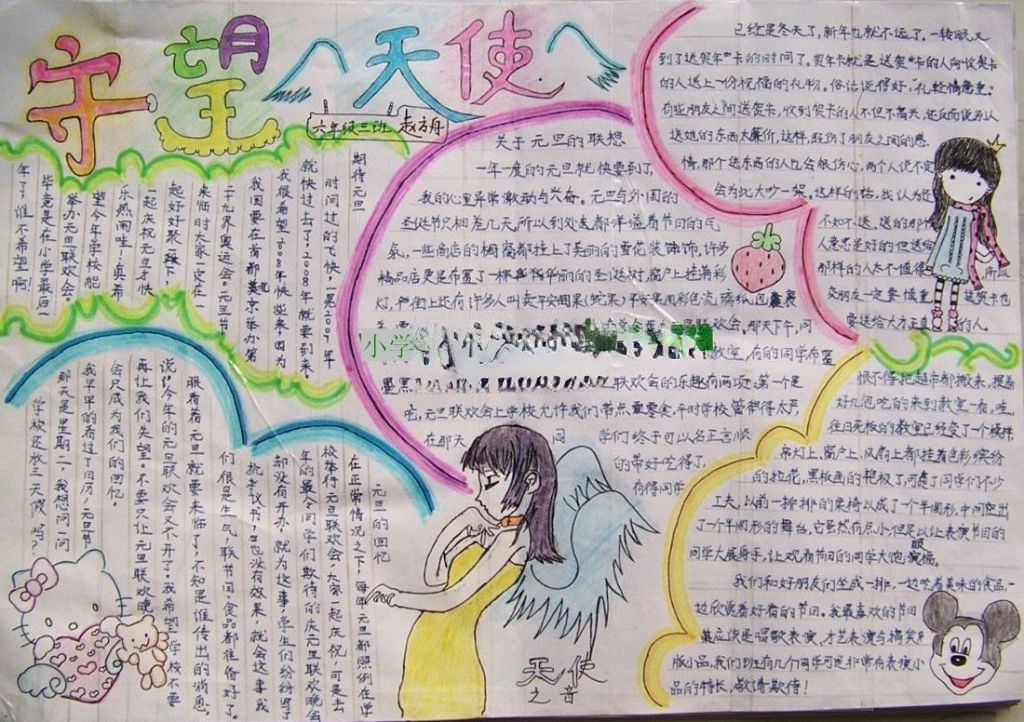 守望天使
六年级三班 赵方舟
期待元旦
时间过的飞快,一晃2007年
就快过去了,2008年就要到来,
我很希望2008年快些来因为
我国要在首都北京举办第
二十九界奥运会。元旦节
来临时大家一定在
一起庆祝元旦才快
乐热闹哇!真希
望今年学校能
举办元旦联欢会。
毕竟是在小学最后一
年了,谁不希望啊!
关于元旦的联想
一年一度的元旦就快要到了,
我的心里异常激动与兴奋。元旦与外国的
圣诞节只相差几天,所以到处送都洋溢着节日的气
氛,一些商店的橱窗都挂上了美丽的雪花装饰,许多
灯,严街上还有许多人叫卖平安果(蛇果)
联欢会,那天下午,同
教室,有的同学布置
联欢会的乐趣有两项,第一个是
吃,元旦联欢会上学校允许我们带点零食,平时学校管都得太严,
在那天 同 学们终于可以名正言顺
的带好吃得了,
有得同学
恨不得把超市都搬来,提着
好几包吃的来到教室一看,哇,
往日亮板的教室已经变了一个模样,
吊灯上,窗户上,风扇上都挂着色彩缤纷
的拉花,黑板画的艳极了,可费了同学们不少
工夫,以前一排排的桌椅以成了一个半圆形,中间空出
了一个半圆形的舞台,它虽然有点小但足以让表演节目的
同学大展身手,让欢看节目的同学大饱眼福。
我们和好朋友们坐成一排,一边吃着美味的食品一
边欣赏着好看的节目。我最喜欢的节目
莫应该是唱歌表演,才艺表演与搞笑
版小品,我们班有几个同学可是非常有表演小
品的特长,敬请欺侍!
已经是冬天了,新年也就不远了,一转眼又
到了送贺年卡的时间了,贺年卡就是送贺卡的人向收贺卡
的人送上一份祝福的礼物。俗话说得好"礼轻情意重;
有些朋友之间送贺卡,收到贺卡的人不但不高兴,还反而说别人
送她的东西太廉价,这样,既伤了朋友之间的感
情,那个送东西的人也会很伤心,两个人说不定
会为此大吵一架。这样的话,我认为还
不如不送,送的那个
人意思是好的但送给
那样的人太不值得 所以
交朋友一定要慎重 送贺卡也
要送给大方正直的人。
元旦的回忆
在正常情况之下,每年元旦都照例在学
校举行元旦联欢会,大家一起庆祝,可是去
年的最令同学们欺待的庆元旦联欢晚会
都没有开办,就为这事,学生们纷纷写了
抗争议书,也没有效果,就会这事我
们很是生气,联节日食品都准备好了。
眼看着元旦就要来临了,不知是谁传出的消息,
说:今年的元旦联欢会又不开了,我希望学校不要
再让我们失望。不要只让元旦联欢晚
会只成为我们的回忆
我早早的看过了日历,元旦节
那天是星期二,我想问一问
学校还放三天假吗?
天使
之音
小学